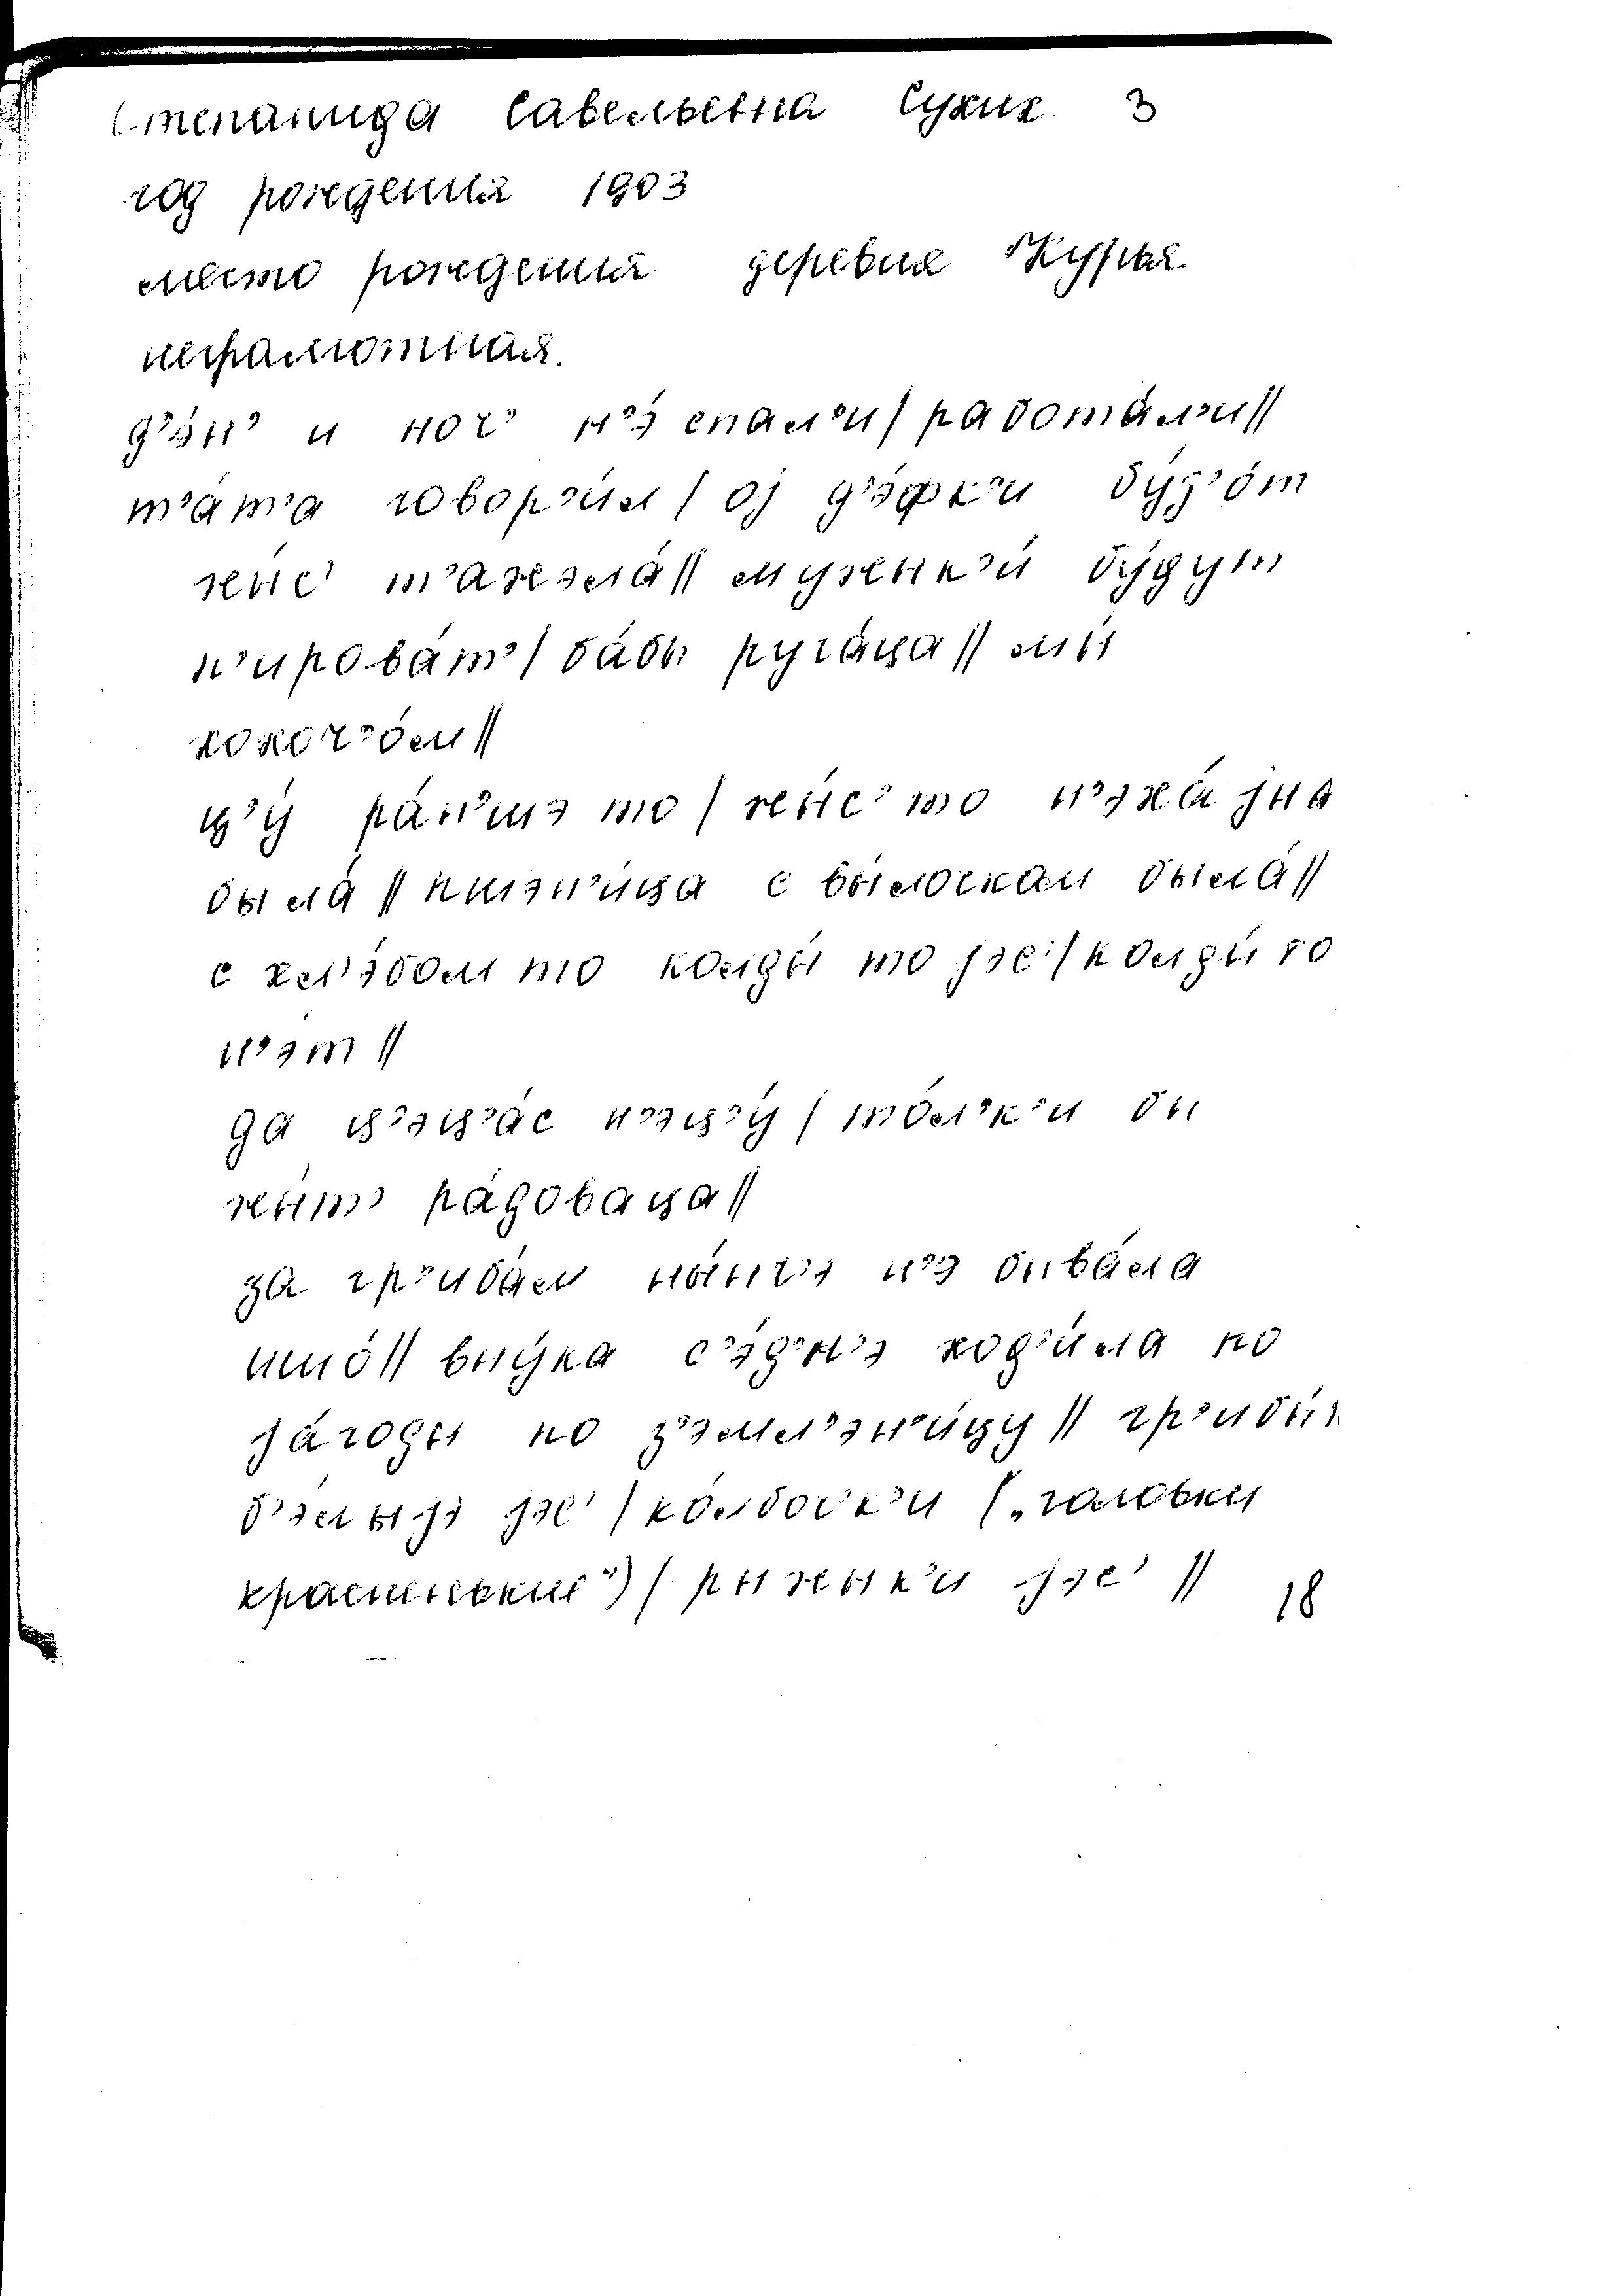 Степанида Савельевна Сухих 3
год рождения 1903
место рождения деревня Курья
неграмотная.
д'э́н' и ноч' н'э́ спал'и / работа́л'и //
т'а́т'а говор'и́л / оj д'э́фк'и бу́д'о́т
жы́с' т'ажэла́ // мужык'и́ бу́дут
п'ирова́т' / ба́бы руга́ца // мы́
хохоч'о́м //
ц'у́ ра́н'шэ то / жы́с' то н'эха́jна
была́ // пшэн'и́ца с вы́лоскам была́ //
с хл'э́бом то колды́ то jэс' / колды́ то
н'э́т //
да ц'эц'а́с н'эц'у́ / то́л'к'и бы
жы́т' ра́доваца //
за гр'иба́м ны́нч'э н'э быва́ла
ишо́ // вну́ка с'э́д'н'э ход'и́ла по
jа́годы по з'эмл'эн'и́цу // гр'ибы́
б'э́лыjэ jэс' / ко́лбос'к'и („головки
красненькие“) / рыжык'и jэс' //
18